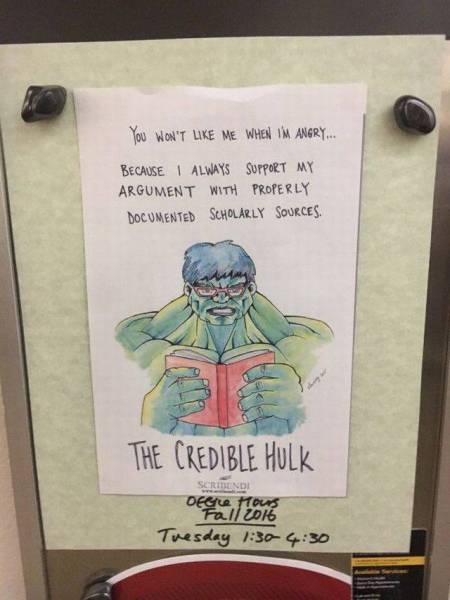 You WON'T LIKE ME WHEN I'M ANGRY...
BECAUSE I ALWAYS SUPPORT MY
ARGUMENT WITH PROPERLY
DOCUMENTED SCHOLARLY SOURCES.
THE CREDIBLE HULK
SCRIBENDI
Office Hours
Fall 2016
Tuesday 1:30-4:30
Available Services: